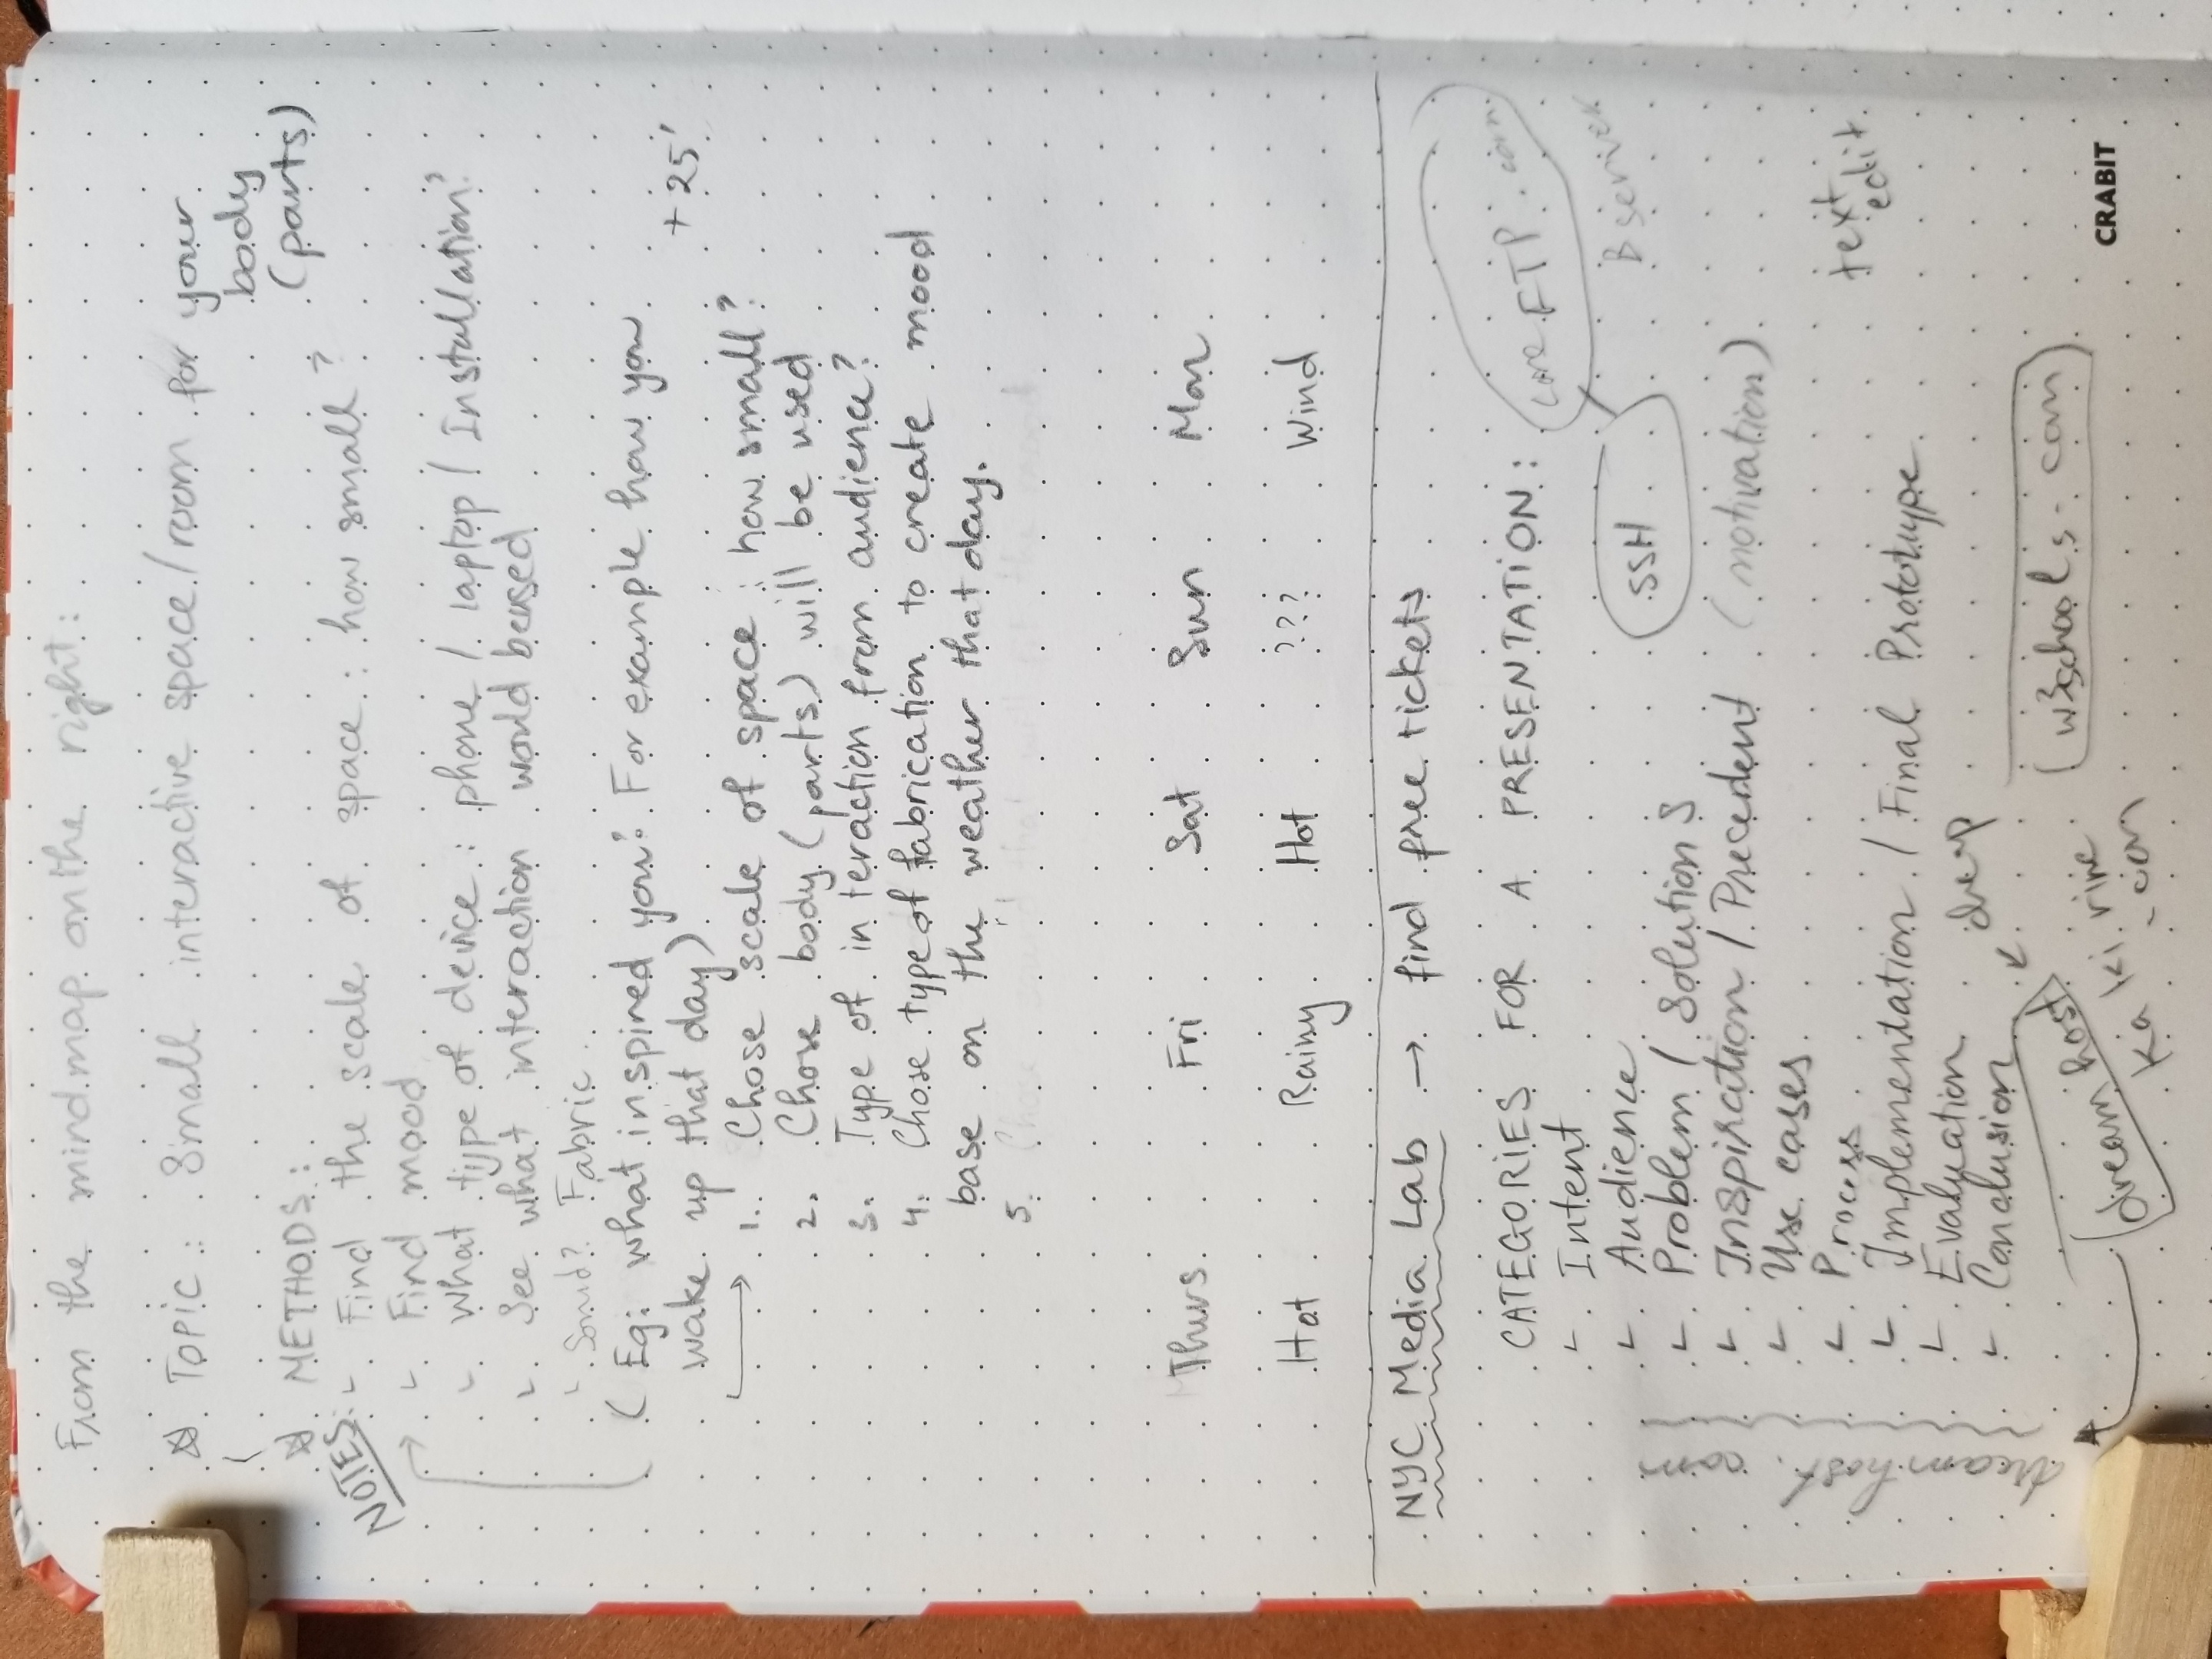 From the mind map on the right:
Topic: Small interactive space/room for your
body
(parts)
METHODS:
NOTES:
Find the scale of space: how small?
Find mood
What type of device: phone / laptop / Installation?
See what interaction would be used
Sound? Fabric
(Eg: what inspired you? For example how you
wake up that day)
+ 25'
1. Chose scale of space: how small?
2. Chose body (parts) will be used
3. Type of interaction from audience?
4. Chose type of fabrication to create mood
base on the weather that day.
5. Chose sound that will fit the mood
Thurs Fri Sat Sun Mon
Hot Rainy Hot ??? Wind
NYC Media Lab → find free tickets
CATEGORIES FOR A PRESENTATION:
core FTP.com
Intent
Audience
SSH
B server
Problem / Solutions
Inspiration / Precedent (motivation)
Use cases
Process
text
edit
Implementation / Final Prototype
Evaluation
cheap
Conclusion
dreamhost.com
dreamhost
w3schools.com
kakirine
.com
CRABIT